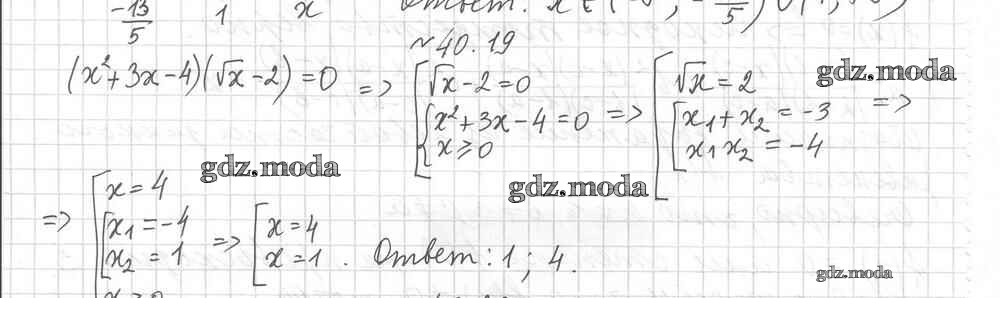 -13/5 1 x Ответ:
№ 40.19
(x²+3x-4)(√x-2)=0 => [ √x-2=0 { x²+3x-4=0 x⩾0 => [ √x=2 [ x₁+x₂=-3 x₁x₂=-4 =>
gdz.moda
gdz.moda
gdz.moda
=> [ x=4 [ x₁=-4 x₂=1 => [ x=4 x=1 . Ответ: 1; 4.
gdz.moda